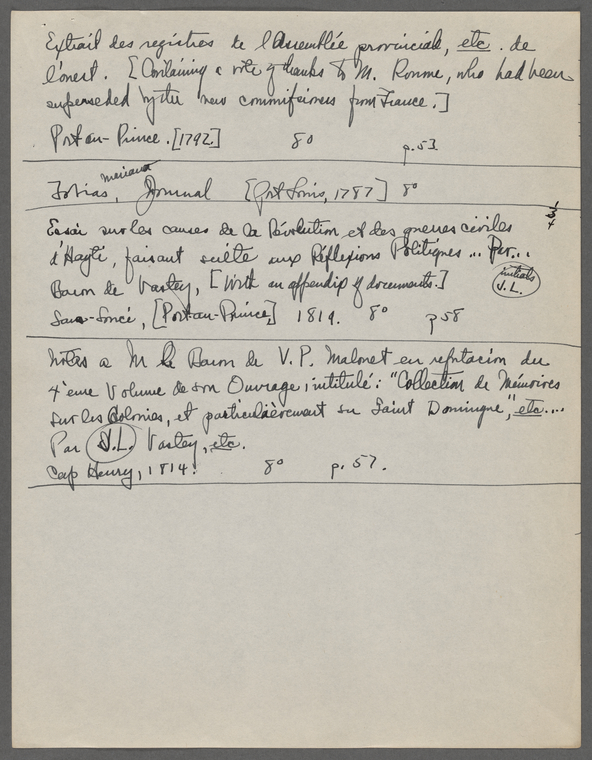 Extrait des registres de l'Assemblée provinciale, etc. de
l'ouest. [Containing a vote of thanks to M. Roume, who had been
superseded by the new commissioners from France.]
Port au-Prince. [1792] 8° p. 53
Tobias, Journal [Port Louis, 1787] 8°
Essai sur les causes de la Révolution et des guerres civiles
d'Hayti, faisant suite aux Réflexions Politiques ... Par...
Baron de Vastey, [With an appendix of documents.]
initials
J. L.
Sans-Souci, [Port au-Prince] 1819. 8° p 58
Notes a M le Baron de V. P. Malouet en refutacion du
4'eme Volume de son Ouvrage, intitulé: "Collection de Mémoires
sur les Colonies, et particulièrement su Saint Domingue," etc....
Par J. L. Vastey, etc.
Cap Henry, 1814. 8° p. 57.